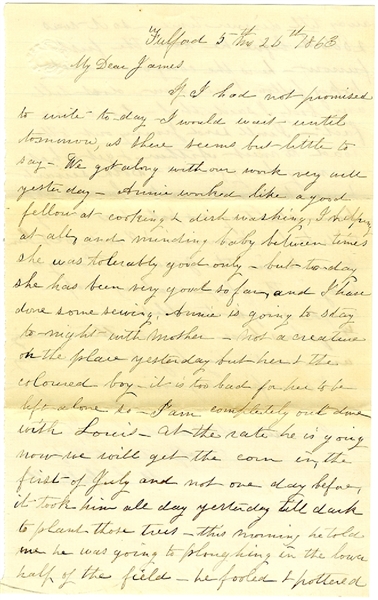 Fulford 5th mo 26th 1863
My Dear James
If I had not promised
to write to-day I would wait until
tomorrow, as there seems but little to
say - We got along with our work very well
yesterday - Annie worked like a good
fellow at cooking & dish washing, I helping
at all, and minding baby between times
she was tolerably good only - but to-day
she has been very good so far, and I have
done some sewing, Annie is going to stay
to-night with Mother - not a creature
on the place yesterday but her & the
coloured boy - it is too bad for her to be
left alone so - I am completely out done
with Louis - at the rate he is going
now we will get the corn in, the
first of July and not one day before,
it took him all day yesterday till dark
to plant those trees - this morning he told
me he was going to ploughing in the lower
half of the field - he fooled & pottered